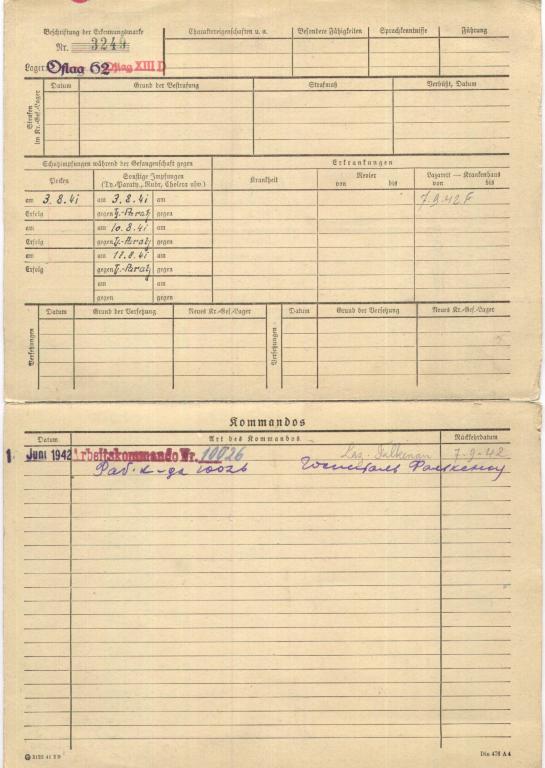 Beschriftung der Erkennungsmarke
Nr. 3249
Lager: Oflag 62 Oflag XIII D
Charaktereigenschaften u. a.
Besondere Fähigkeiten
Sprachkenntnisse
Führung
Strafen im Kr.-Gef.-Lager
Datum
Grund der Bestrafung
Strafmaß
Verbüßt, Datum
Schutzimpfungen während der Gefangenschaft gegen
Erkrankungen
Pocken
Sonstige Impfungen
(Ty.-Paraty., Ruhr, Cholera usw.)
Krankheit
Revier
von bis
Lazarett — Krankenhaus
von bis
am 3.8.41 am 3.8.41 am 7.9.42 F
Erfolg gegen Ty.-Paraty gegen
am am 10.8.41 am
Erfolg gegen Ty.-Paraty gegen
am am 17.8.41 am
Erfolg gegen Ty.-Paraty gegen
am am
gegen gegen
Versetzungen
Datum
Grund der Versetzung
Neues Kr.-Gef.-Lager
Versetzungen
Datum
Grund der Versetzung
Neues Kr.-Gef.-Lager
Kommandos
Datum
Art des Kommandos
Rückkehrdatum
1. Juni 1942 Arbeitskommando Nr. 10026 Laz. Falkenau 7-9-42
Раб. к-да 10026 Госпиталь Фалкенау
Din 476 A 4